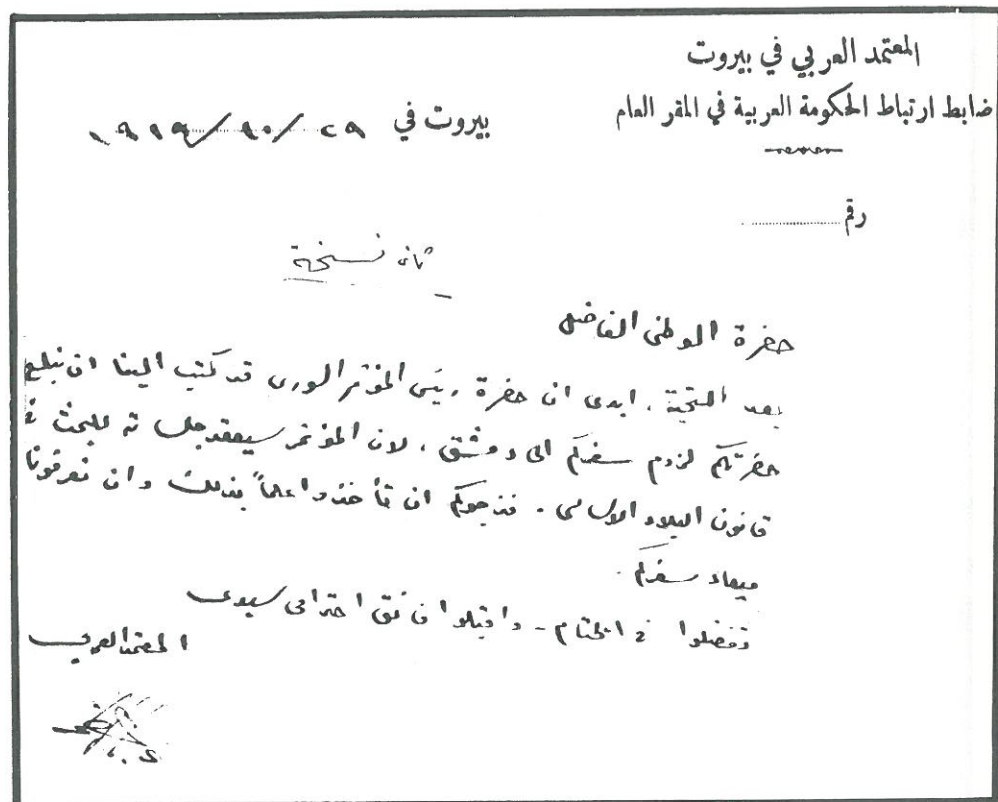 المعتمد العربي في بيروت
ضابط ارتباط الحكومة العربية في المقر العام
بيروت في ٢٩/١٠/١٩١٩
رقم
ثاني نسخة
حضرة الوطني الفاضل
بعد التحية، ابدي ان حضرة رئيس المؤتمر السوري قد كتب الينا ان نبلغ
حضرتكم لزوم سفركم الى دمشق، لان المؤتمر سيعقد جلسته للبحث في
قانون البلاد الاساسي. فنرجوكم ان تأخذوا علماً بذلك وان تعرفونا
ميعاد سفركم.
تفضلوا في الختام - واقبلوا فائق احترامي سيدي
المعتمد العربي